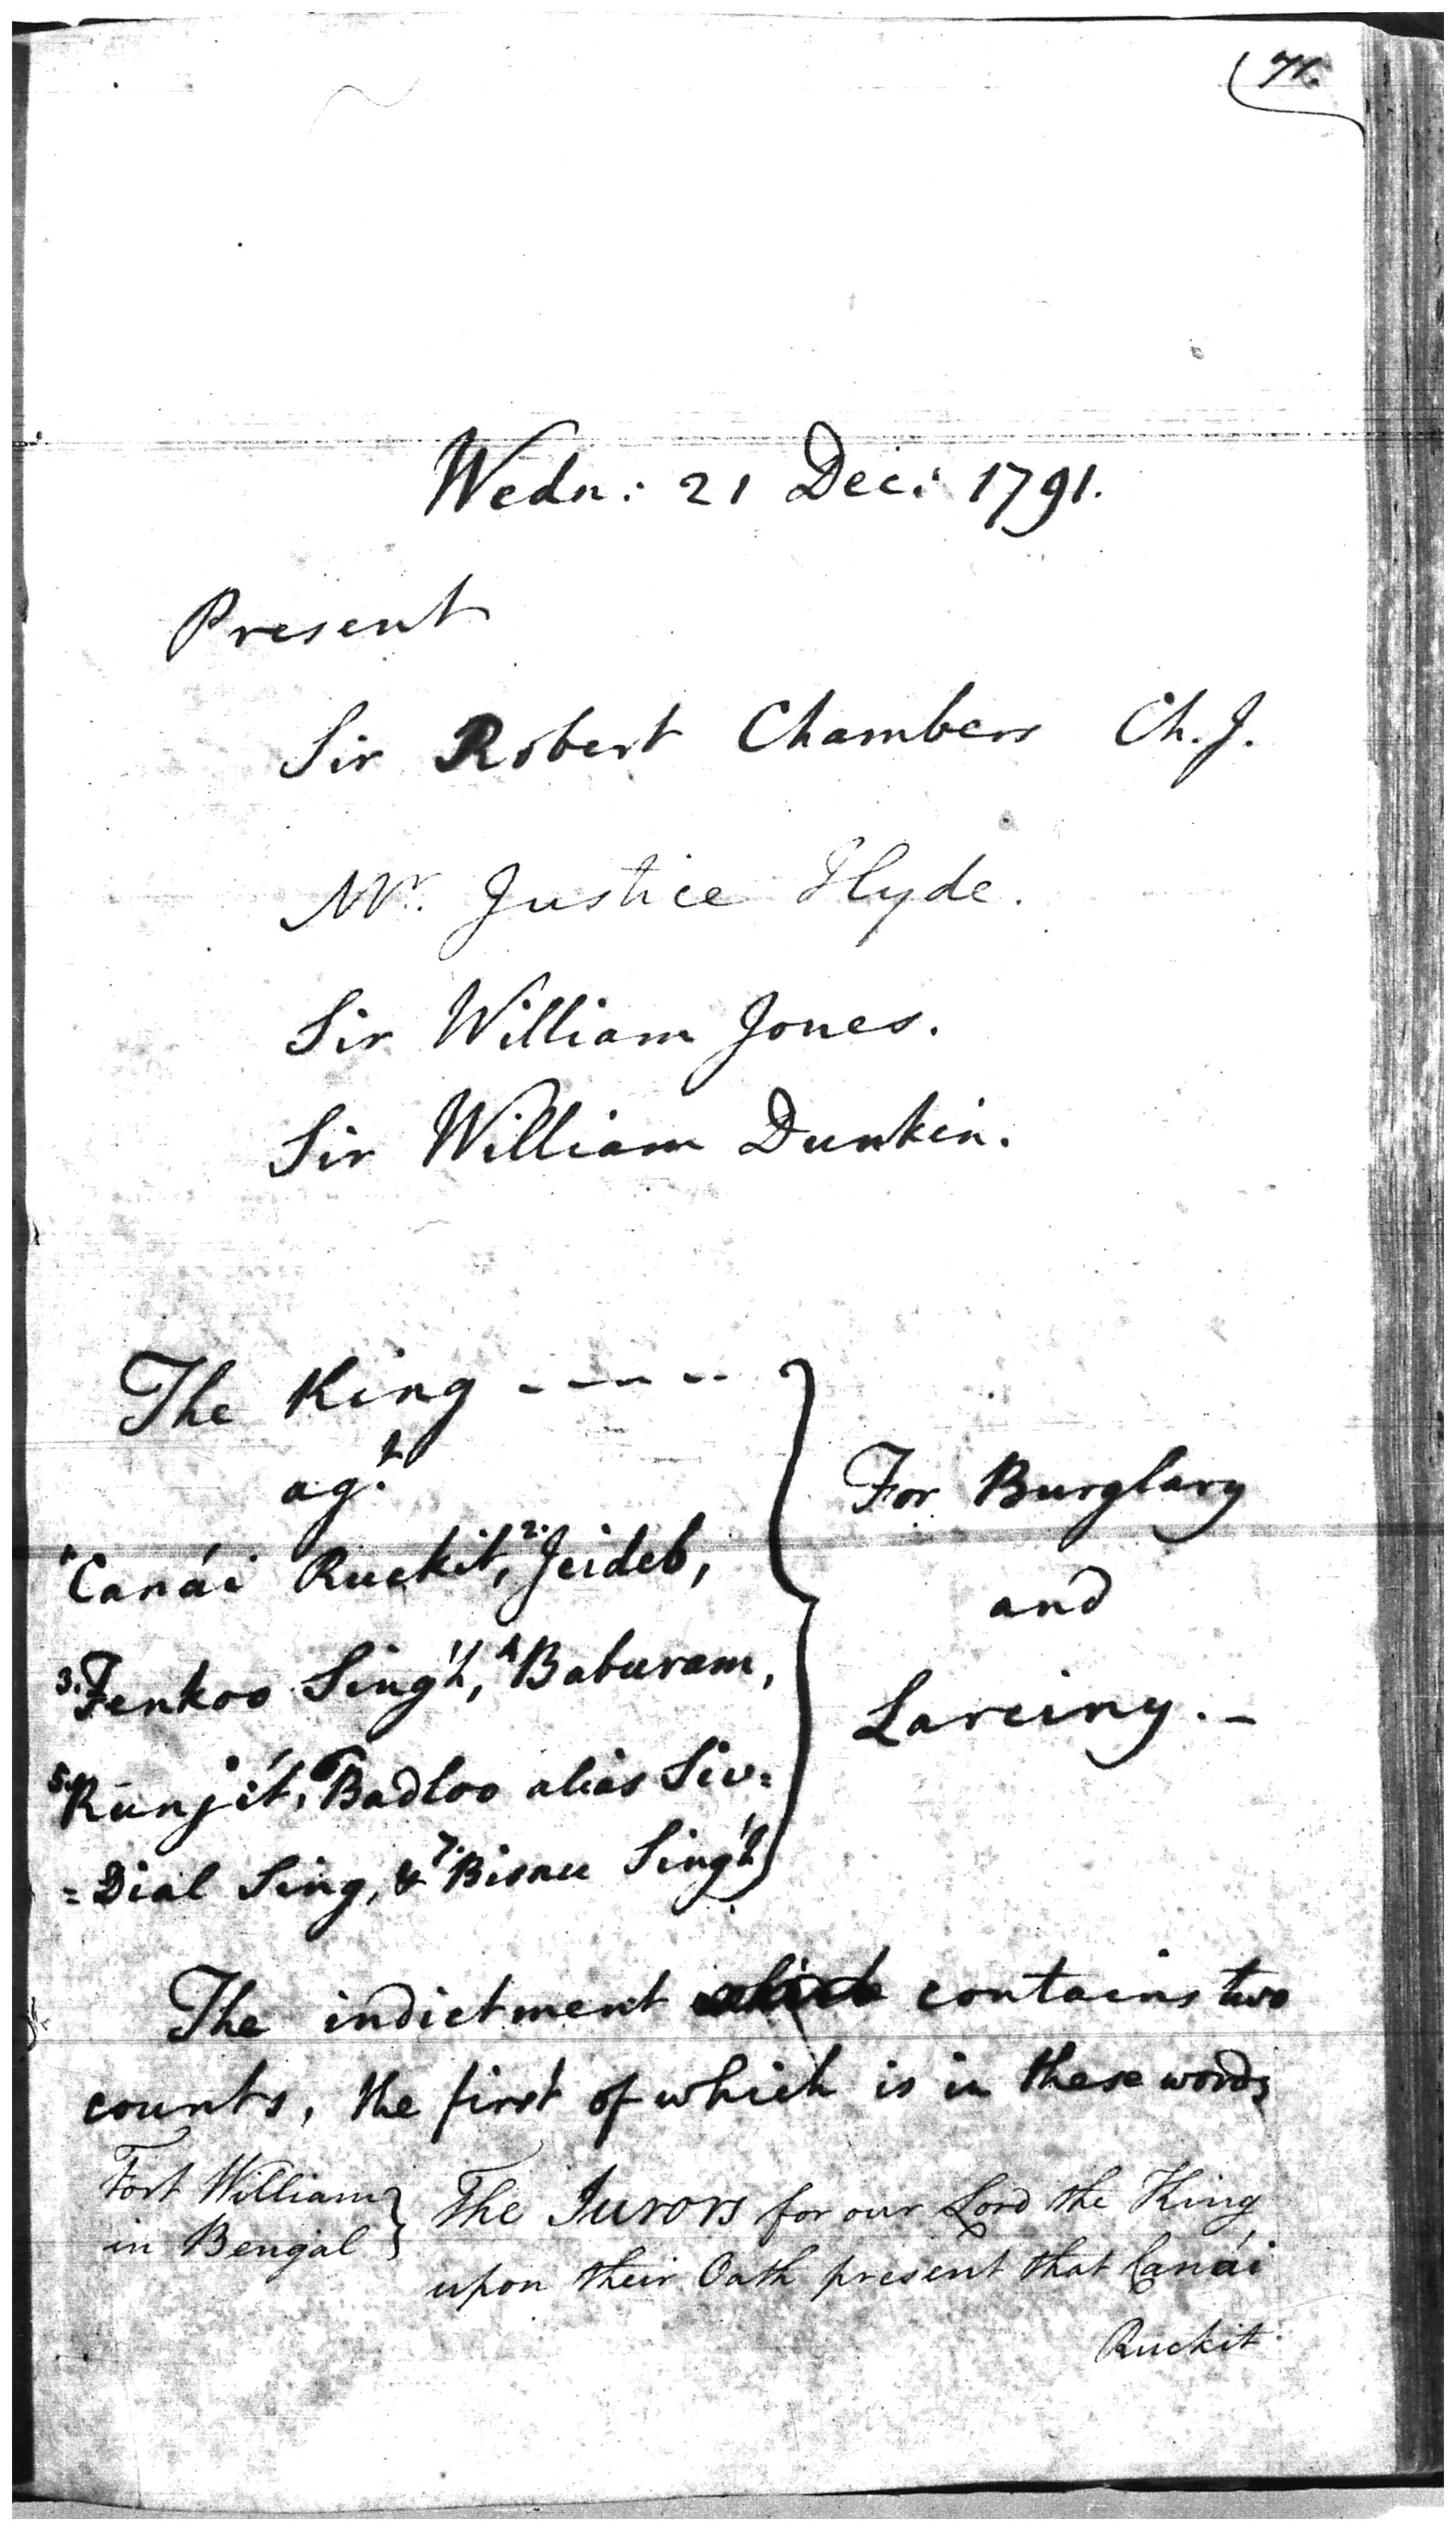 71.
Wedn: 21 Dec: 1791.
Present
Sir Robert Chambers Ch. J.
Mr. Justice Hyde.
Sir William Jones.
Sir William Dunkin.
The King -----
agt.
1 Canái Ruckit, 2. Jeideb,
3. Fenkoo Sing'h, 4 Baburam,
5. Runjít, 6 Badloo alias Siv=
=Dial Sing, & 7. Bisnu Sing'h
For Burglary
and
Larciny. _
The indictment which contains two
counts, the first of which is in these words
Fort William
in Bengal
The Jurors for our Lord the King
upon their Oath present that Canái
Ruckit